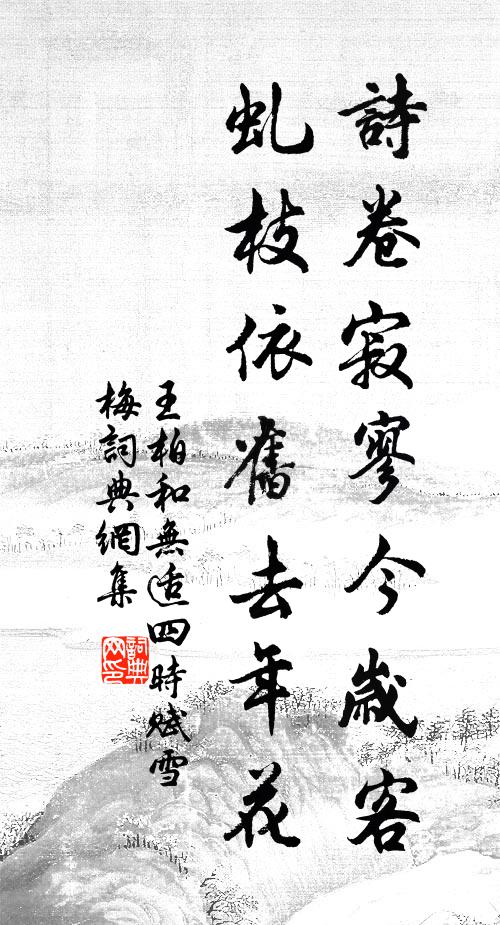 詩卷寂寥今歲客
虬枝依舊去年花
王柏和無適四時賦雪
梅詞典網集
詞典網印